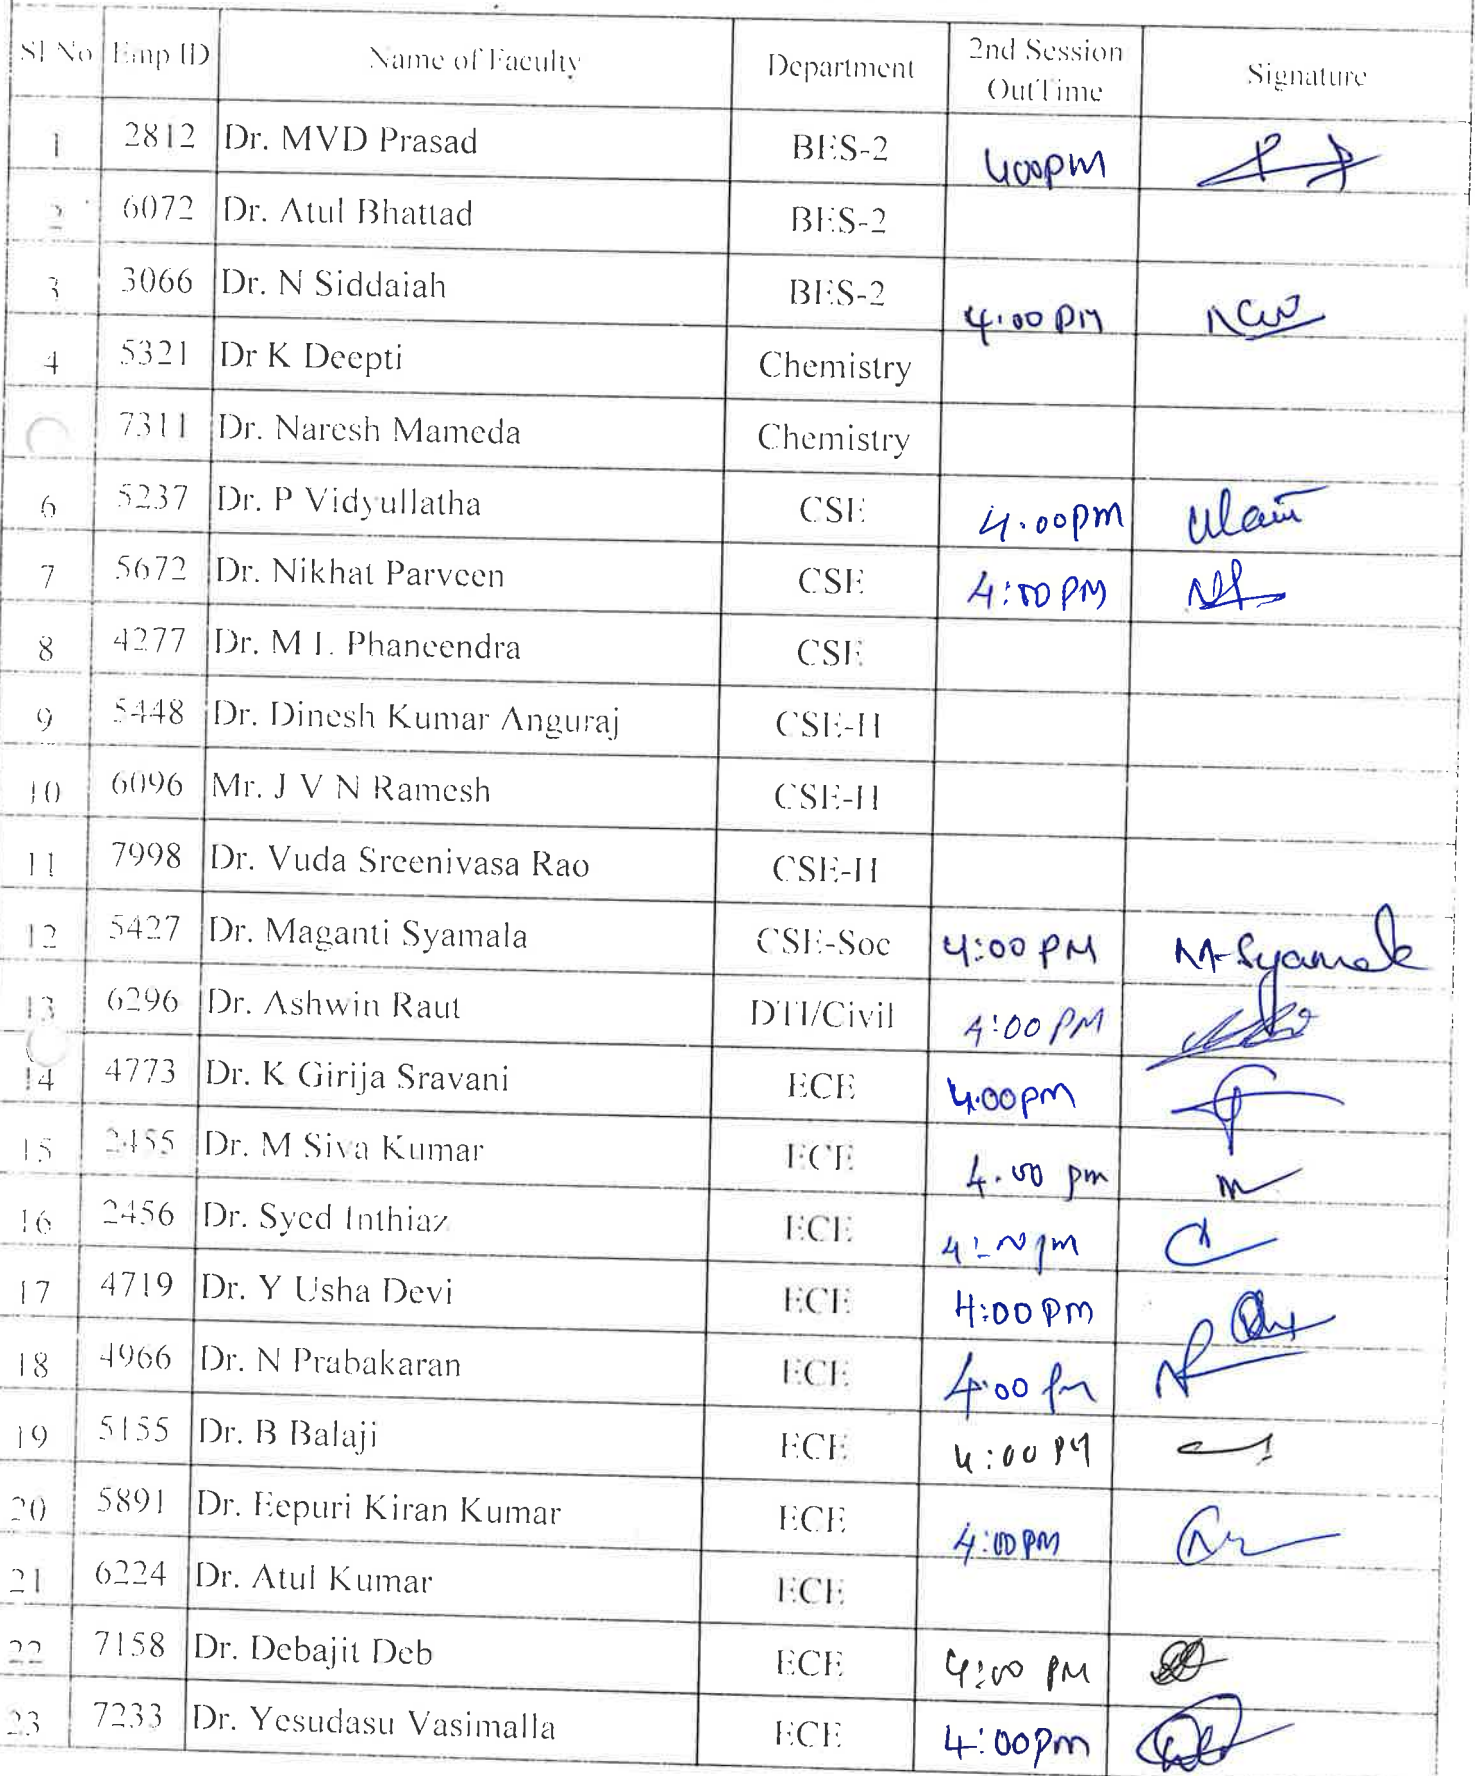 Sl No Emp ID Name of Faculty Department 2nd Session OutTime Signature
1 2812 Dr. MVD Prasad BES-2 4:00PM
2 6072 Dr. Atul Bhattad BES-2
3 3066 Dr. N Siddaiah BES-2 4:00 PM
4 5321 Dr K Deepti Chemistry
7311 Dr. Naresh Mameda Chemistry
6 5237 Dr. P Vidyullatha CSE 4.00pm
7 5672 Dr. Nikhat Parveen CSE 4:00 PM
8 4277 Dr. M L Phaneendra CSE
9 5448 Dr. Dinesh Kumar Anguraj CSE-H
10 6096 Mr. J V N Ramesh CSE-H
11 7998 Dr. Vuda Sreenivasa Rao CSE-H
12 5427 Dr. Maganti Syamala CSE-Soc 4:00 PM M. Syamala
13 6296 Dr. Ashwin Raut DTI/Civil 4:00 PM
14 4773 Dr. K Girija Sravani ECE 4.00pm
15 2455 Dr. M Siva Kumar ECE 4.00 pm
16 2456 Dr. Syed Inthiaz ECE
17 4719 Dr. Y Usha Devi ECE 4:00 PM
18 4966 Dr. N Prabakaran ECE 4:00 pm
19 5155 Dr. B Balaji ECE 4:00 PM
20 5891 Dr. Eepuri Kiran Kumar ECE 4:00PM
21 6224 Dr. Atul Kumar ECE
22 7158 Dr. Debajit Deb ECE 4:00 PM
23 7233 Dr. Yesudasu Vasimalla ECE 4:00pm